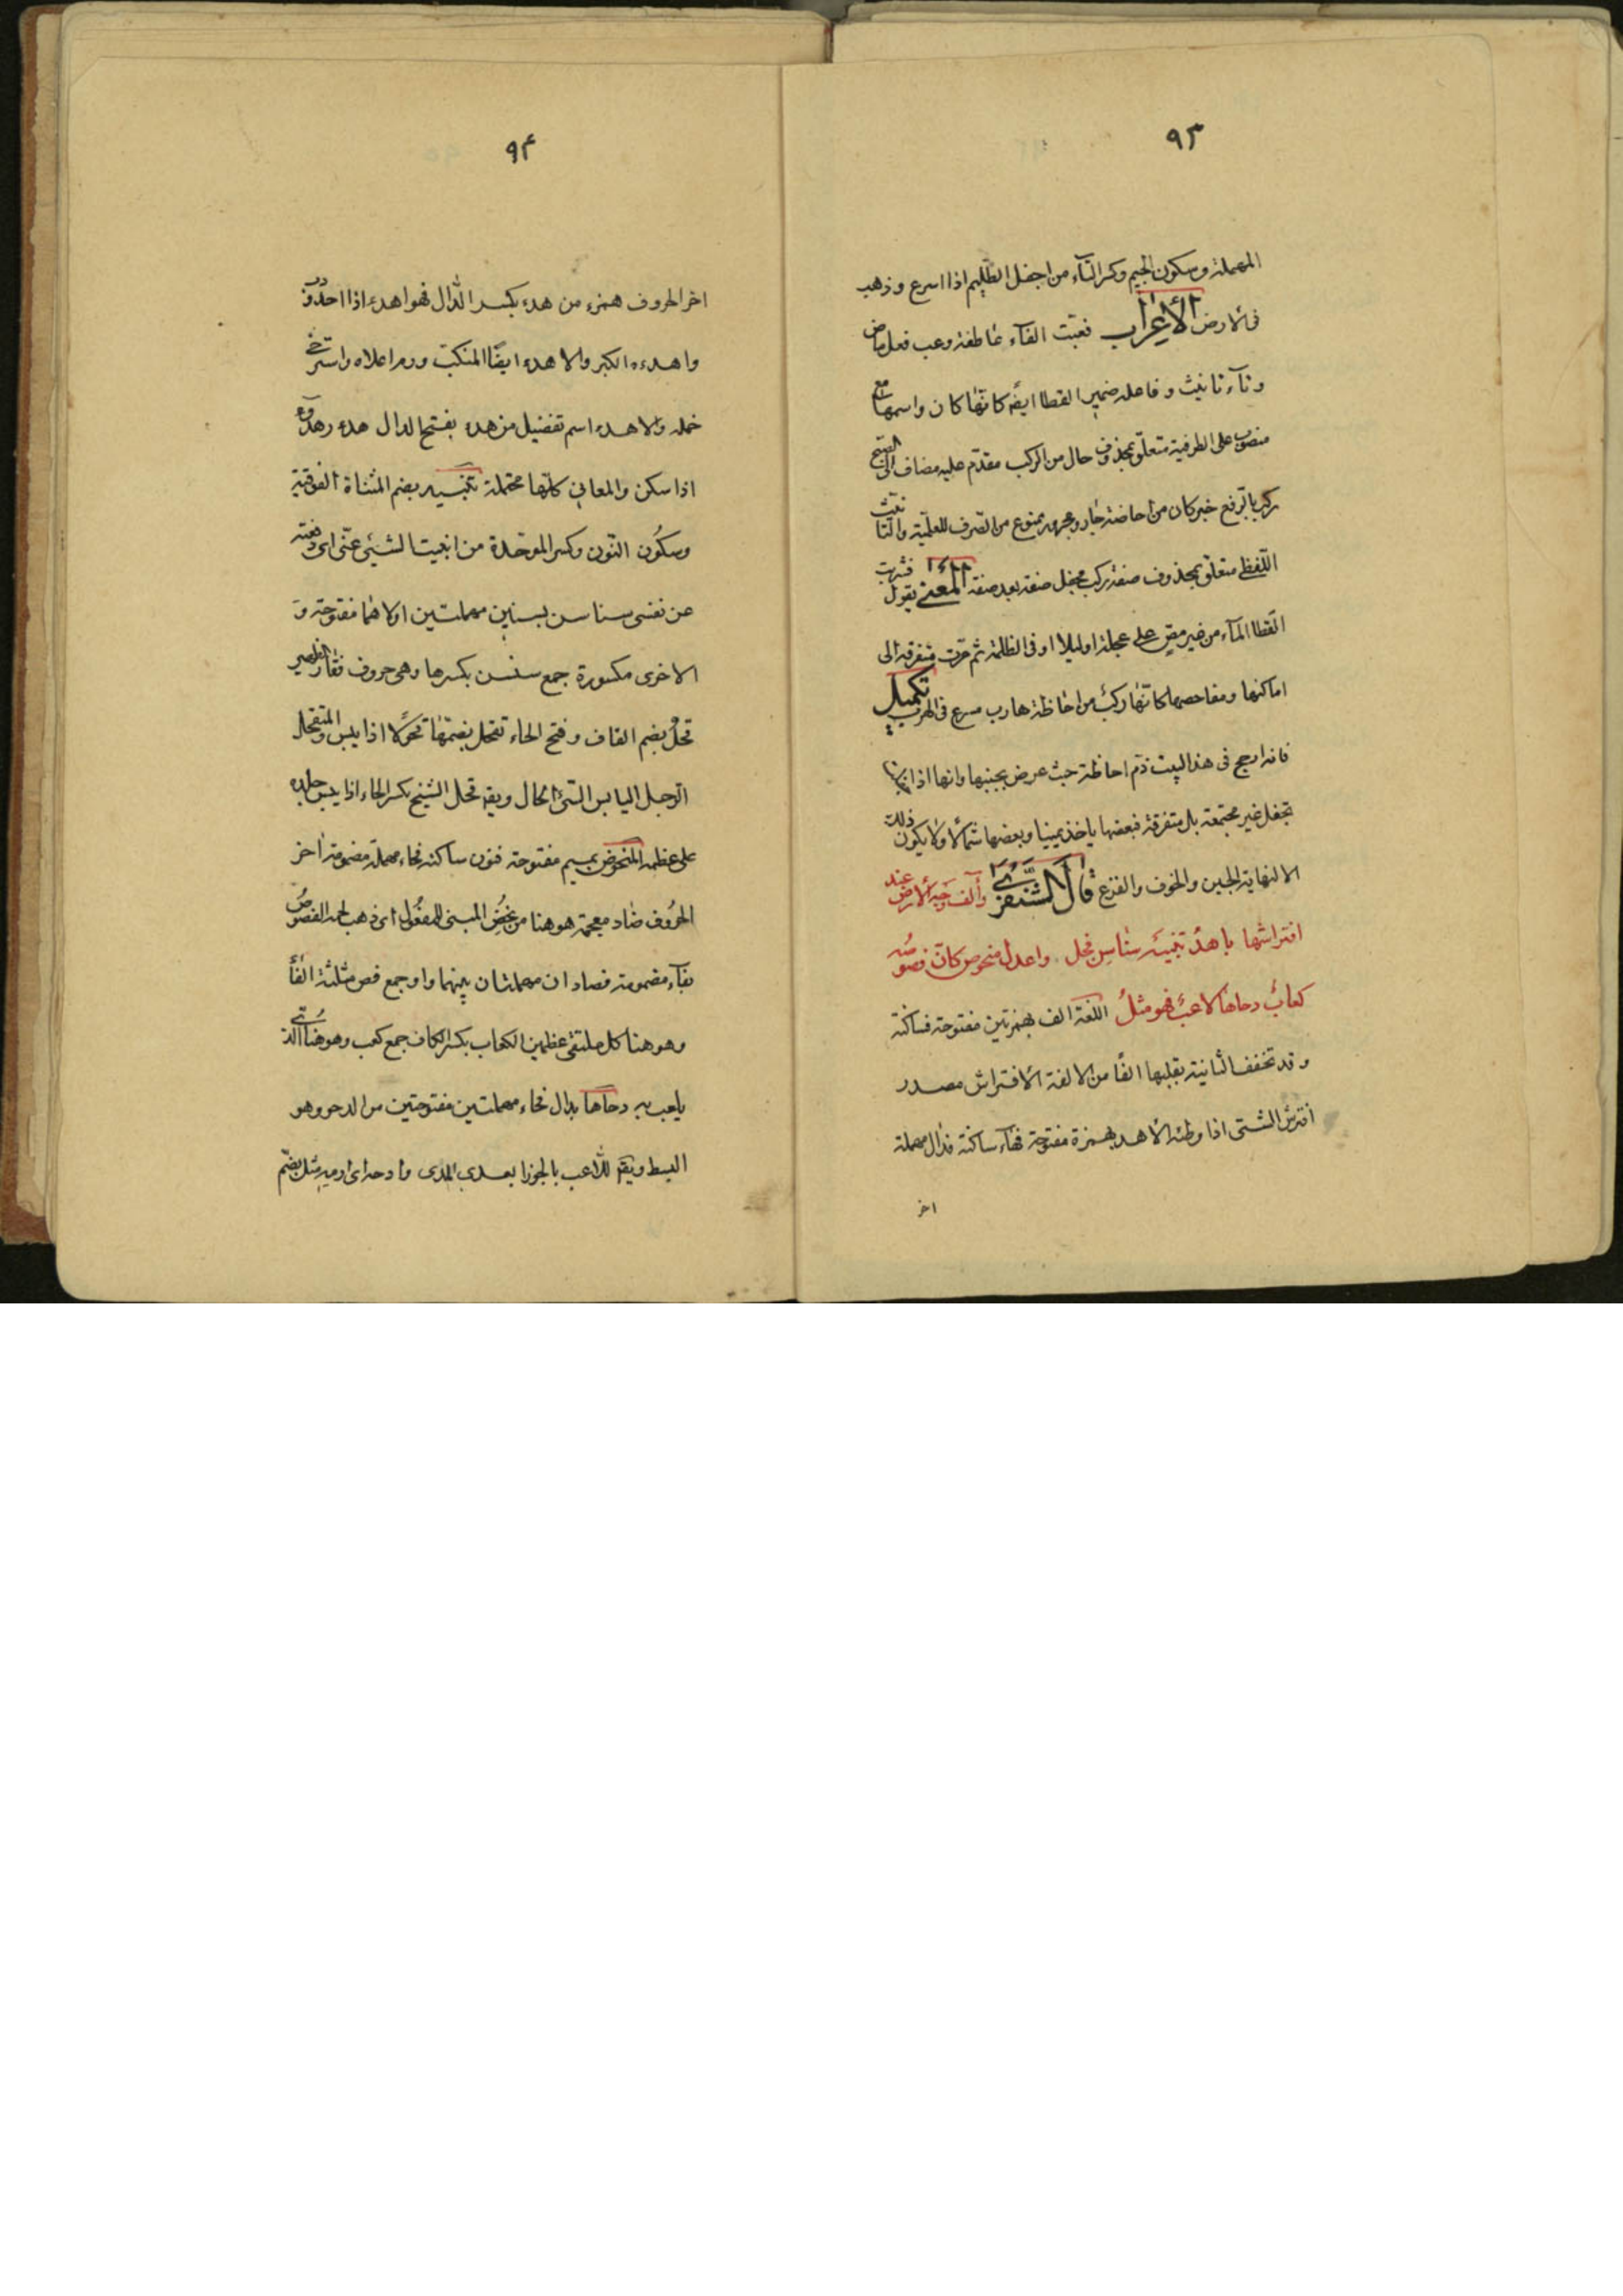 ٩٣
المهملة وسكون الجيم وكسر الفآء من اجفل الظّليم اذا اسرع وذهب
فى الارض الأعراب فعبّت الفآء عاطفة وعب فعل ماض
وتآء تانيث وفاعله ضمير القطا ايضً كانّها كان واسمها مع
منصوب على الظرفية متعلّق بمحذوف حال من الركب مقدّم عليه مضاف الى الصّبح
ركب بالرفع خبر كان من احاضة جار ومجرور ممنوع من الصّرف للعلميّة والتّانيث
اللّفظى متعلّق بمحذوف صفة ركب مجفل صفة بعد صفة المعنى يقول فشربت
القطا المآء من غير مصّ على عجلة اوليلا او فى الظلمة ثم مرّت متفرقة الى
اماكنها ومفاحصها كانّها ركب من احاظة هارب مسرع فى الهرب تكميل
فانه ادمج فى هذا البيت ذمّ احاظة حيث عرض بجبنها وانها اذا
تجفل غير مجتمعة بل متفرقة فبعضها ياخذ يمينا وبعضها شمالًا ولا يكون ذلك
الا لنهاية الجبن والخوف والفزع قال الشّنفرى وآلف وجه الأرض عند
افتراشها باهدأ تنبيه سناسن قحل واعدل منحوض كانّ فصوصه
كعاب دحاها لاعب فهو مثل اللغة الف بهمزتين مفتوحة فساكنة
وقد تخفف الثانية بقلبها الفًا من الالفة الافتراش مصدر
افترش الشئى اذا وطئه الأهدء بهمزة مفتوحة فهآء ساكنة فدال مهملة
اخر
٩۴
اخر الحروف همزء من هدء بكسر الدال فهو اهدء اذا احدودب
واهدءه الكبر والاهدء ايضًا المنكب ورم اعلاه واسترخى
حمله والاهدء اسم تفضيل من هدء بفتح الدال هدء وهدوء
اذا سكن والمعانى كلّها محتملة تنبيه بضم المثناة الفوقية
وسكُون النّون وكسر الموحّدة من انبيت الشيئى عنّى اى دفعته
عن نفسى سناسن بسينين مهملتين اولاهما مفتوحة و
الاخرى مكسورة جمع سنسن بكسرها وهى حروف فقار الظهر
قحل بضم القاف وفتح الحاء تقحل بضمّها قحولًا اذا يبس والمتقحل
الرجل اليابس السّئ الحال ويقه قحل الشيخ بكسر الحاء اذا يبس جلده
على عظمه المنحوض بميم مفتوحة فنون ساكنه فحاء مهملة مضمومة اخر
الحرُوف ضاد معجمة هو هنا من نحض المبنى للمفعُول اى ذهب لحمه الفصُوص
بفآء مضمومة فصادان مهملتان بينهما واو جمع فص مثلثة الفاً
وهو هنا كل ملتقى عظمين الكعاب بكسر الكاف جمع كعب وهو هُنا الذى
يلعب به دحاها بدال فحاء مهملتين مفتوحتين من الدحو وهو
البسط ويقه للّاعب بالجوز ابعدى المدى وادحه اى ارميه مثل بضمّ